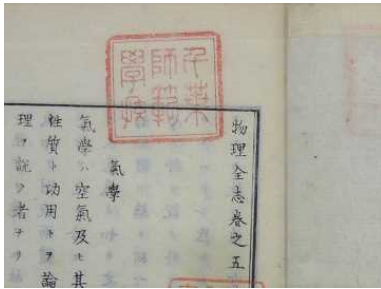 千葉
師範
學校
物理全志卷之五
氣學
氣學ハ空氣及ヒ其
性質ト功用トヲ論
理ヲ說ク者ナリ